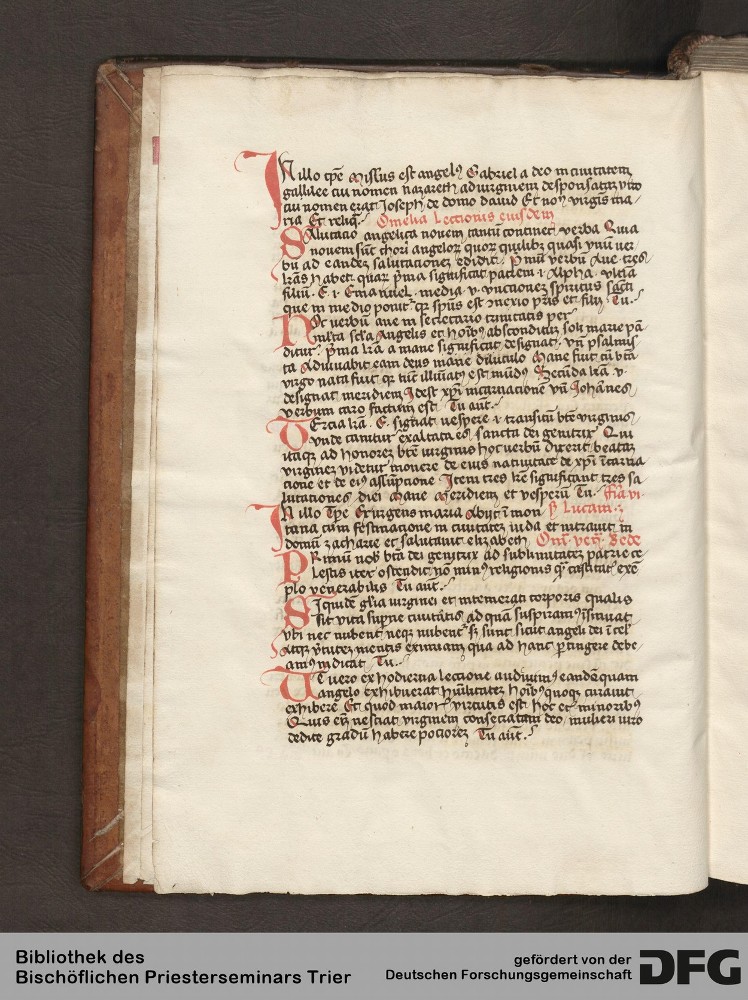 In illo tpe Missus est angelꝰ Gabriel a deo in ciuitatem
galilee cui nomen nazareth ad virginem desponsatā viro
cui nomen erat Joseph de domo dauid Et nomē virgīs ma
ria Et reliqᷓ Omelia Lectionis eiusdem
Salutacio angelica nouem tantū continet verba Quia
nouem sunt chori angelorꝝ quorꝝ quilibꝫ quasi vnū ver
bū ad eandeꝫ salutacioneꝫ edidit Pͥmū verbū Aue tres
lrās habet quarꝝ pͥma significat patrem i Alpha vltīa
filiū E i Emanuel media v vnctioneꝫ spiritus sancti
que in medio ponitꝛ qꝛ spūs est ꝯnexio pr̄is et filij Tu
Hoc verbū aue in secretario trinitatis per
multa scl̄a Angelis et hoībꝰ absconditū soli marie pā
ditur pͥma lrā a mane significat designat vn̄ psalmis
ta Adiuuabit eam deus mane diluculo Mane fuit cū btā
virgo nata fuit qꝛ tūc illūīatꝰ est mūdꝰ Secūda lrā v
designat meridiem Idest xp̄i incarnacionē vn̄ Johānes
verbum caro factum est Tu aūt
Tercia lrā E signat vespere i transitū btē virginis
vnde canitur exaltata es sancta dei genitrix Qui
itaqꝫ ad honoreꝫ btē virginis hoc verbū dixerit beatā
virgineꝫ videtur monere de eius natiuitate de xp̄i īcarna
cione et de eiꝰ assūpcione Item tres lrē significant tres sa
lutationes diei Mane Meridiem et vesperū Tu Fr̄ia vi
In illo Tꝑe Exurgens maria Abijt ī mon S Lucam
tana cum festinacione in ciuitateꝫ iuda et intrauit in
domū zacharie et salutauit elizabeth Om̄ ven̄ Bede
Primū nob̄ btā dei genitrix ad sublimitateꝫ patrie ce
lestis iter ostendit nō minꝰ religionis qᷓ castitatꝭ exē
plo venerabilis Tu aūt
Siquidē glīa virginei et intemerati corporis qualis
sit vita supne ciuitatis ad quā suspiramꝰ īsinuat
vbi nec nubent neqꝫ nubentꝛ sꝫ sunt sicut angeli dei ī cel
Atqꝫ v̄tuteꝫ mentis eximiam qua ad hanc ꝑtingere debe
amꝰ indicat Tu
Ut vero ex hodierna lectione audiuimꝰ eandē quam
angelo exhibuerat hūilitateꝫ hoībꝰ quoqꝫ curauit
exhibere Et quod maiorꝭ virtutis est hoc et minoribꝰ
Quis em̄ nesciat virginem consecratam deo mulieri viro
dedite gradū habere pocioreꝫ Tu aūt
Bibliothek des
Bischöflichen Priesterseminars Trier
gefördert von der
Deutschen Forschungsgemeinschaft
DFG